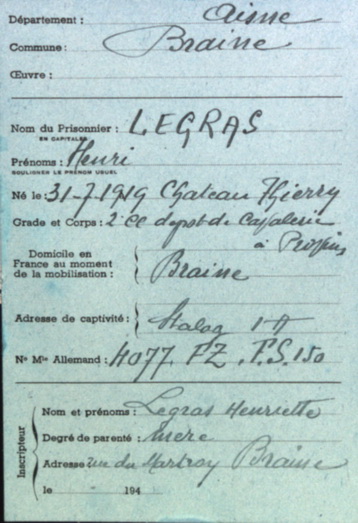 Département : Aisne
Commune : Braine
Œuvre :
Nom du Prisonnier : LEGRAS
EN CAPITALES
Prénoms : Henri
SOULIGNER LE PRÉNOM USUEL
Né le : 31-7-1919 Chateau Thierry
Grade et Corps : 2e Cl depot de Cavalerie
à Provins
Domicile en
France au moment
de la mobilisation : Braine
Adresse de captivité : Stalag 1A
No Mle Allemand : 4077 FZ. F.S. 150
Inscripteur
Nom et prénoms : Legras Henriette
Degré de parenté : mère
Adresse rue du Martroy Braine
le 194